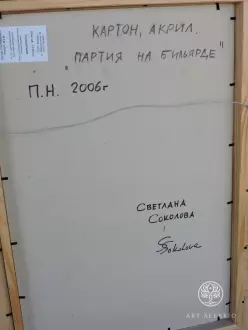 КАРТОН, АКРИЛ.
"ПАРТИЯ НА БИЛЬЯРДЕ"
П.Н. 2006г
СВЕТЛАНА
СОКОЛОВА
Sokolova
ART ALEBRIO